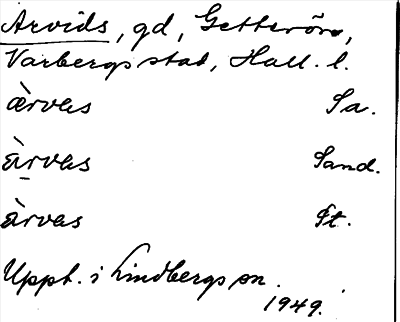 Arvids, gd, Getterön,
Varbergs stad, Hall. l.
æ̀rvas Sa.
àrvas Sand.
àrvas St.
Uppt. i Lindbergs sn.
1949.